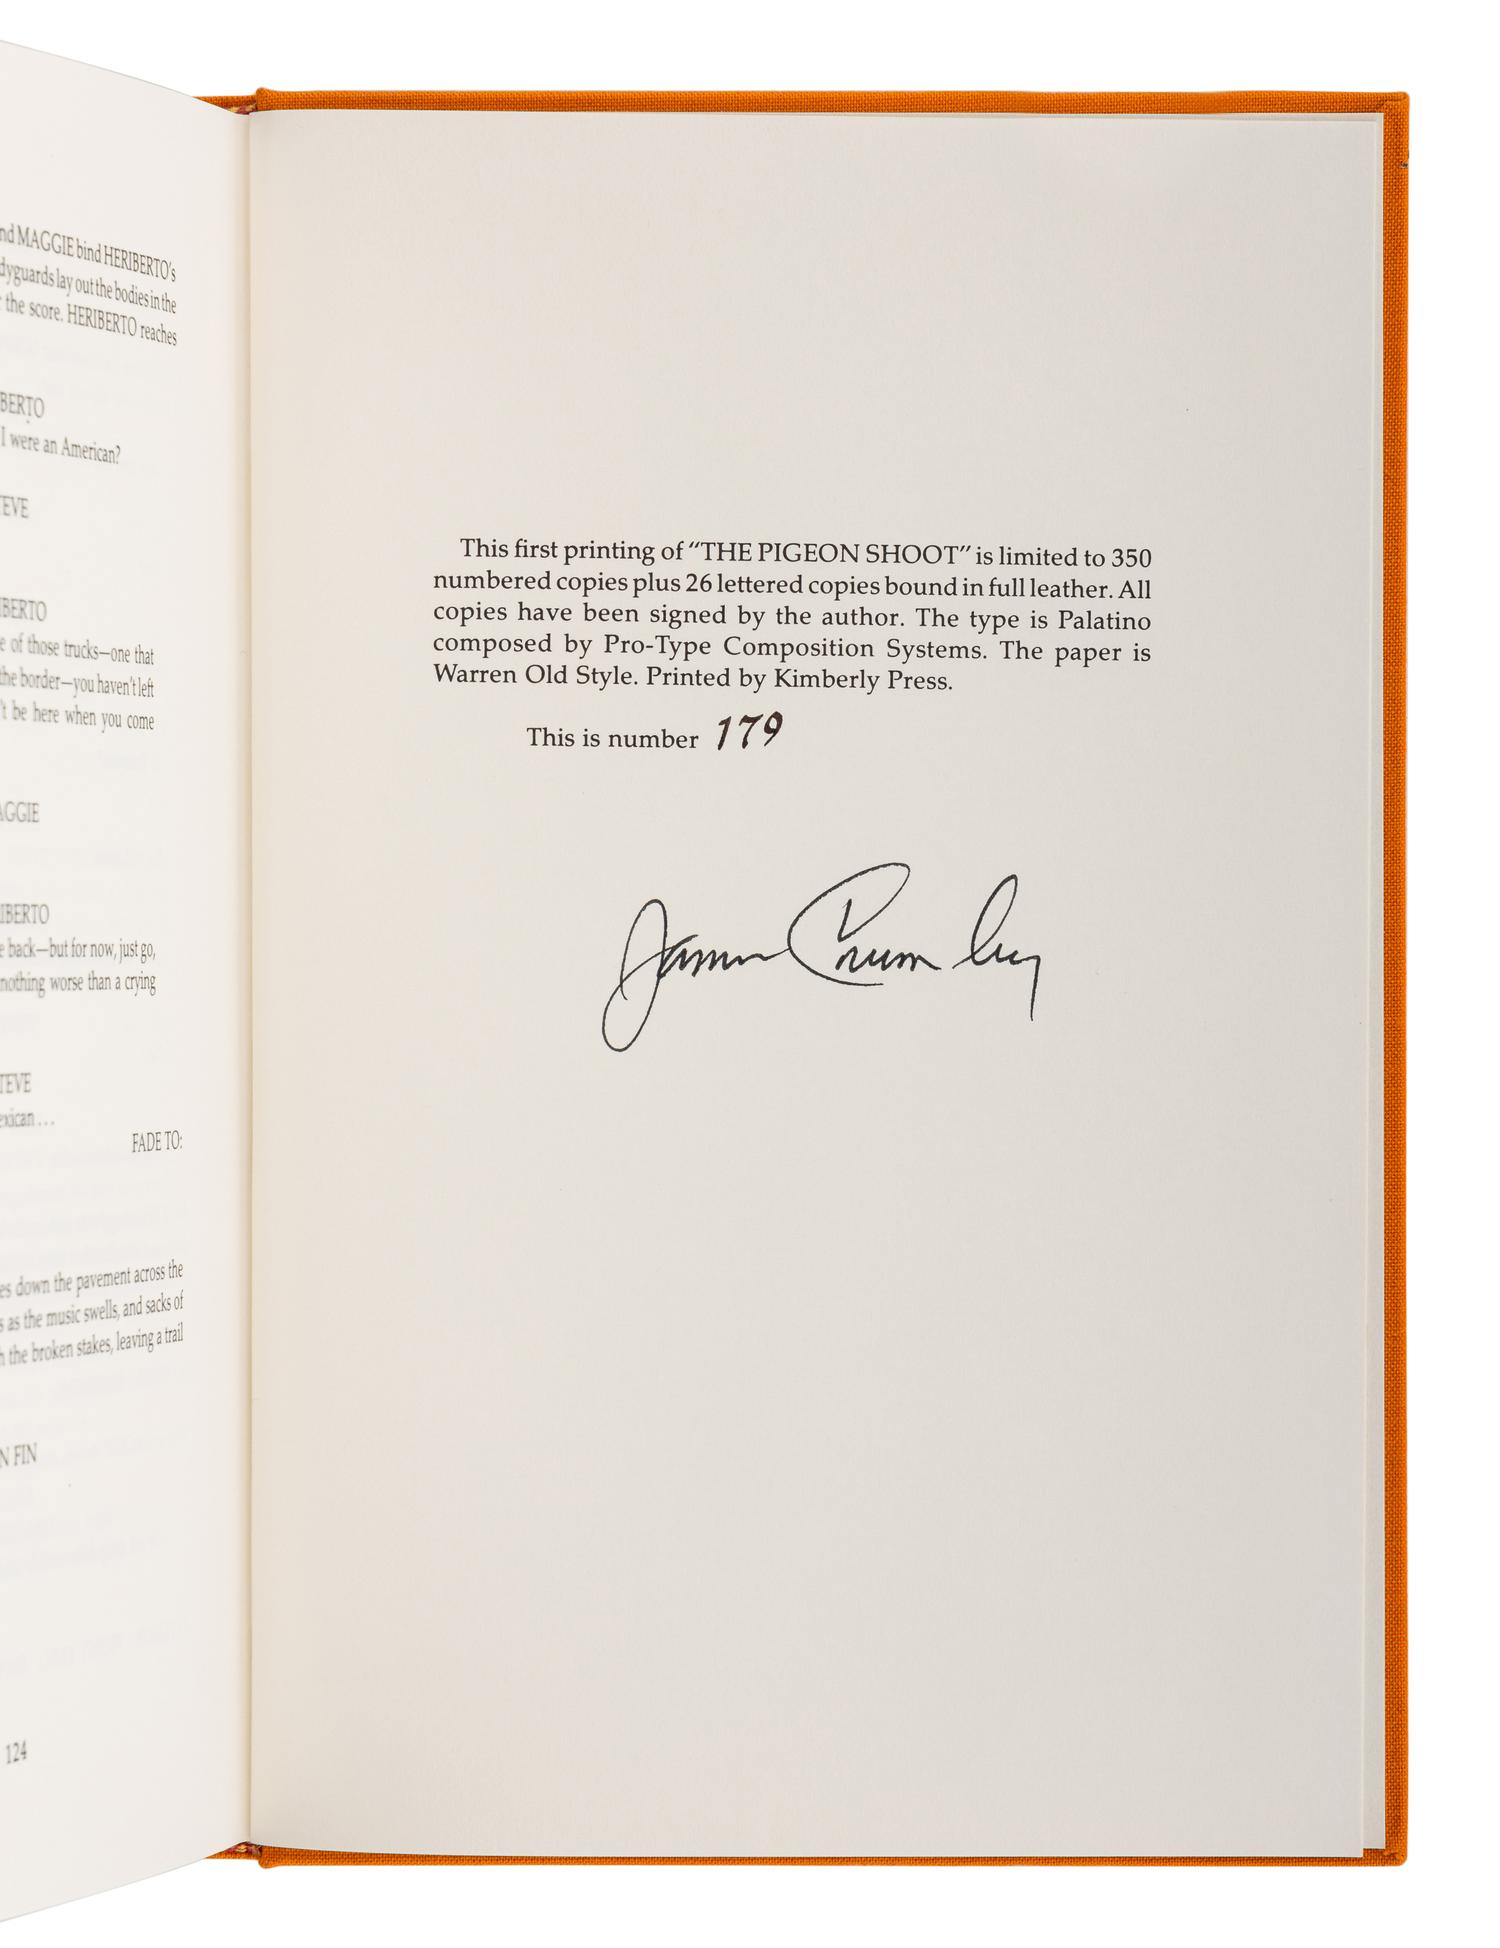 nd MAGGIE bind HERIBERTO's
dyguards lay out the bodies in the
the score. HERIBERTO reaches
BERTO
I were an American?
TEVE
IBERTO
e of those trucks—one that
the border—you haven't left
't be here when you come
AGGIE
IBERTO
e back—but for now, just go,
nothing worse than a crying
TEVE
exican . . .
FADE TO:
es down the pavement across the
s as the music swells, and sacks of
h the broken stakes, leaving a trail
N FIN
124
This first printing of “THE PIGEON SHOOT” is limited to 350
numbered copies plus 26 lettered copies bound in full leather. All
copies have been signed by the author. The type is Palatino
composed by Pro-Type Composition Systems. The paper is
Warren Old Style. Printed by Kimberly Press.
This is number 179
James Crumley